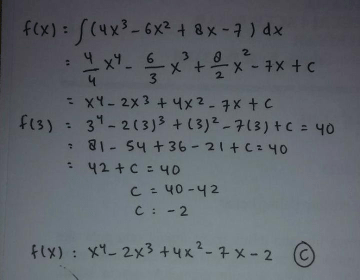 f(x) : ∫(4x³ - 6x² + 8x - 7) dx
= 4/4 x⁴ - 6/3 x³ + 8/2 x² - 7x + c
= x⁴ - 2x³ + 4x² - 7x + c
f(3) : 3⁴ - 2(3)³ + (3)² - 7(3) + c = 40
= 81 - 54 + 36 - 21 + c = 40
= 42 + c = 40
c = 40 - 42
c : -2
f(x) : x⁴ - 2x³ + 4x² - 7x - 2 Ⓒ